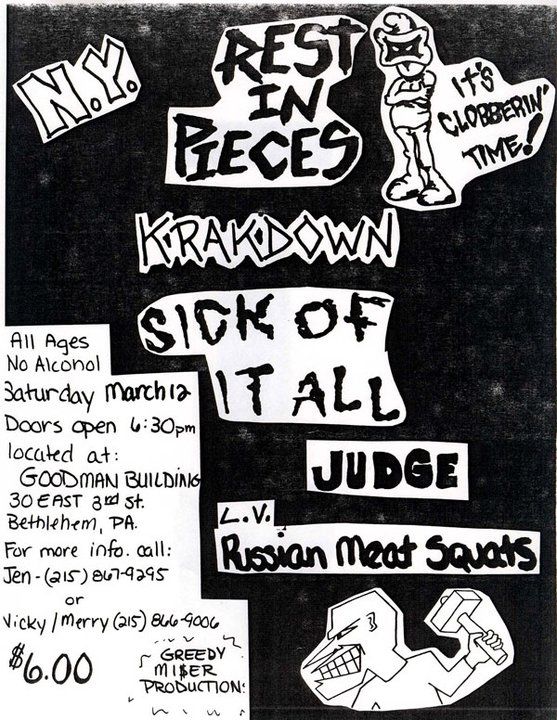 N.Y.
REST
IN
PIECES
IT'S
CLOBBERIN'
TIME!
KRAKDOWN
SICK OF
IT ALL
JUDGE
L.V.
Russian Meat Squats
All Ages
No Alcohol
Saturday March 12
Doors open 6:30pm
located at:
GOODMAN BUILDING
30 EAST 3rd St.
Bethlehem, PA.
For more info. call:
Jen - (215) 867-9295
or
Vicky / Merry (215) 866-9006
$6.00
GREEDY
MI$ER
PRODUCTION: